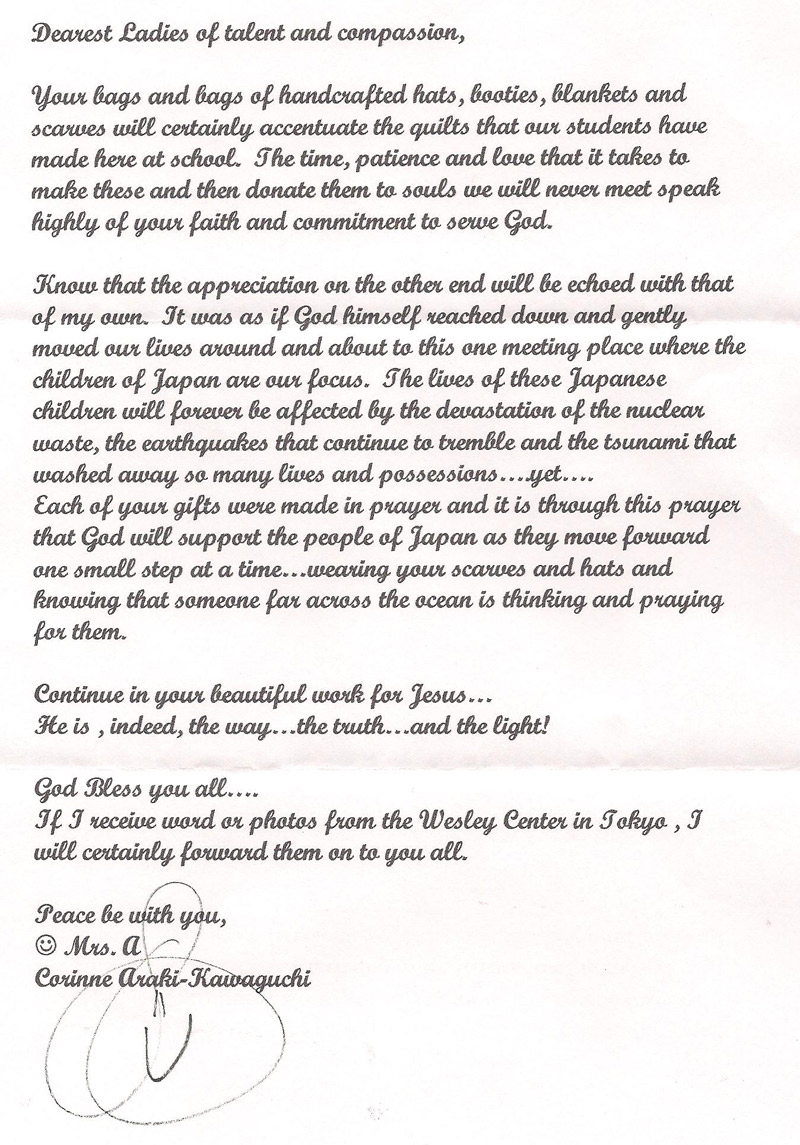 Dearest Ladies of talent and compassion,
Your bags and bags of handcrafted hats, booties, blankets and
scarves will certainly accentuate the quilts that our students have
made here at school.  The time, patience and love that it takes to
make these and then donate them to souls we will never meet speak
highly of your faith and commitment to serve God.
Know that the appreciation on the other end will be echoed with that
of my own.  It was as if God himself reached down and gently
moved our lives around and about to this one meeting place where the
children of Japan are our focus.  The lives of these Japanese
children will forever be affected by the devastation of the nuclear
waste, the earthquakes that continue to tremble and the tsunami that
washed away so many lives and possessions....yet....
Each of your gifts were made in prayer and it is through this prayer
that God will support the people of Japan as they move forward
one small step at a time...wearing your scarves and hats and
knowing that someone far across the ocean is thinking and praying
for them.
Continue in your beautiful work for Jesus...
He is , indeed, the way...the truth...and the light!
God Bless you all....
If I receive word or photos from the Wesley Center in Tokyo , I
will certainly forward them on to you all.
Peace be with you,
☺ Mrs. A
Corinne Araki-Kawaguchi